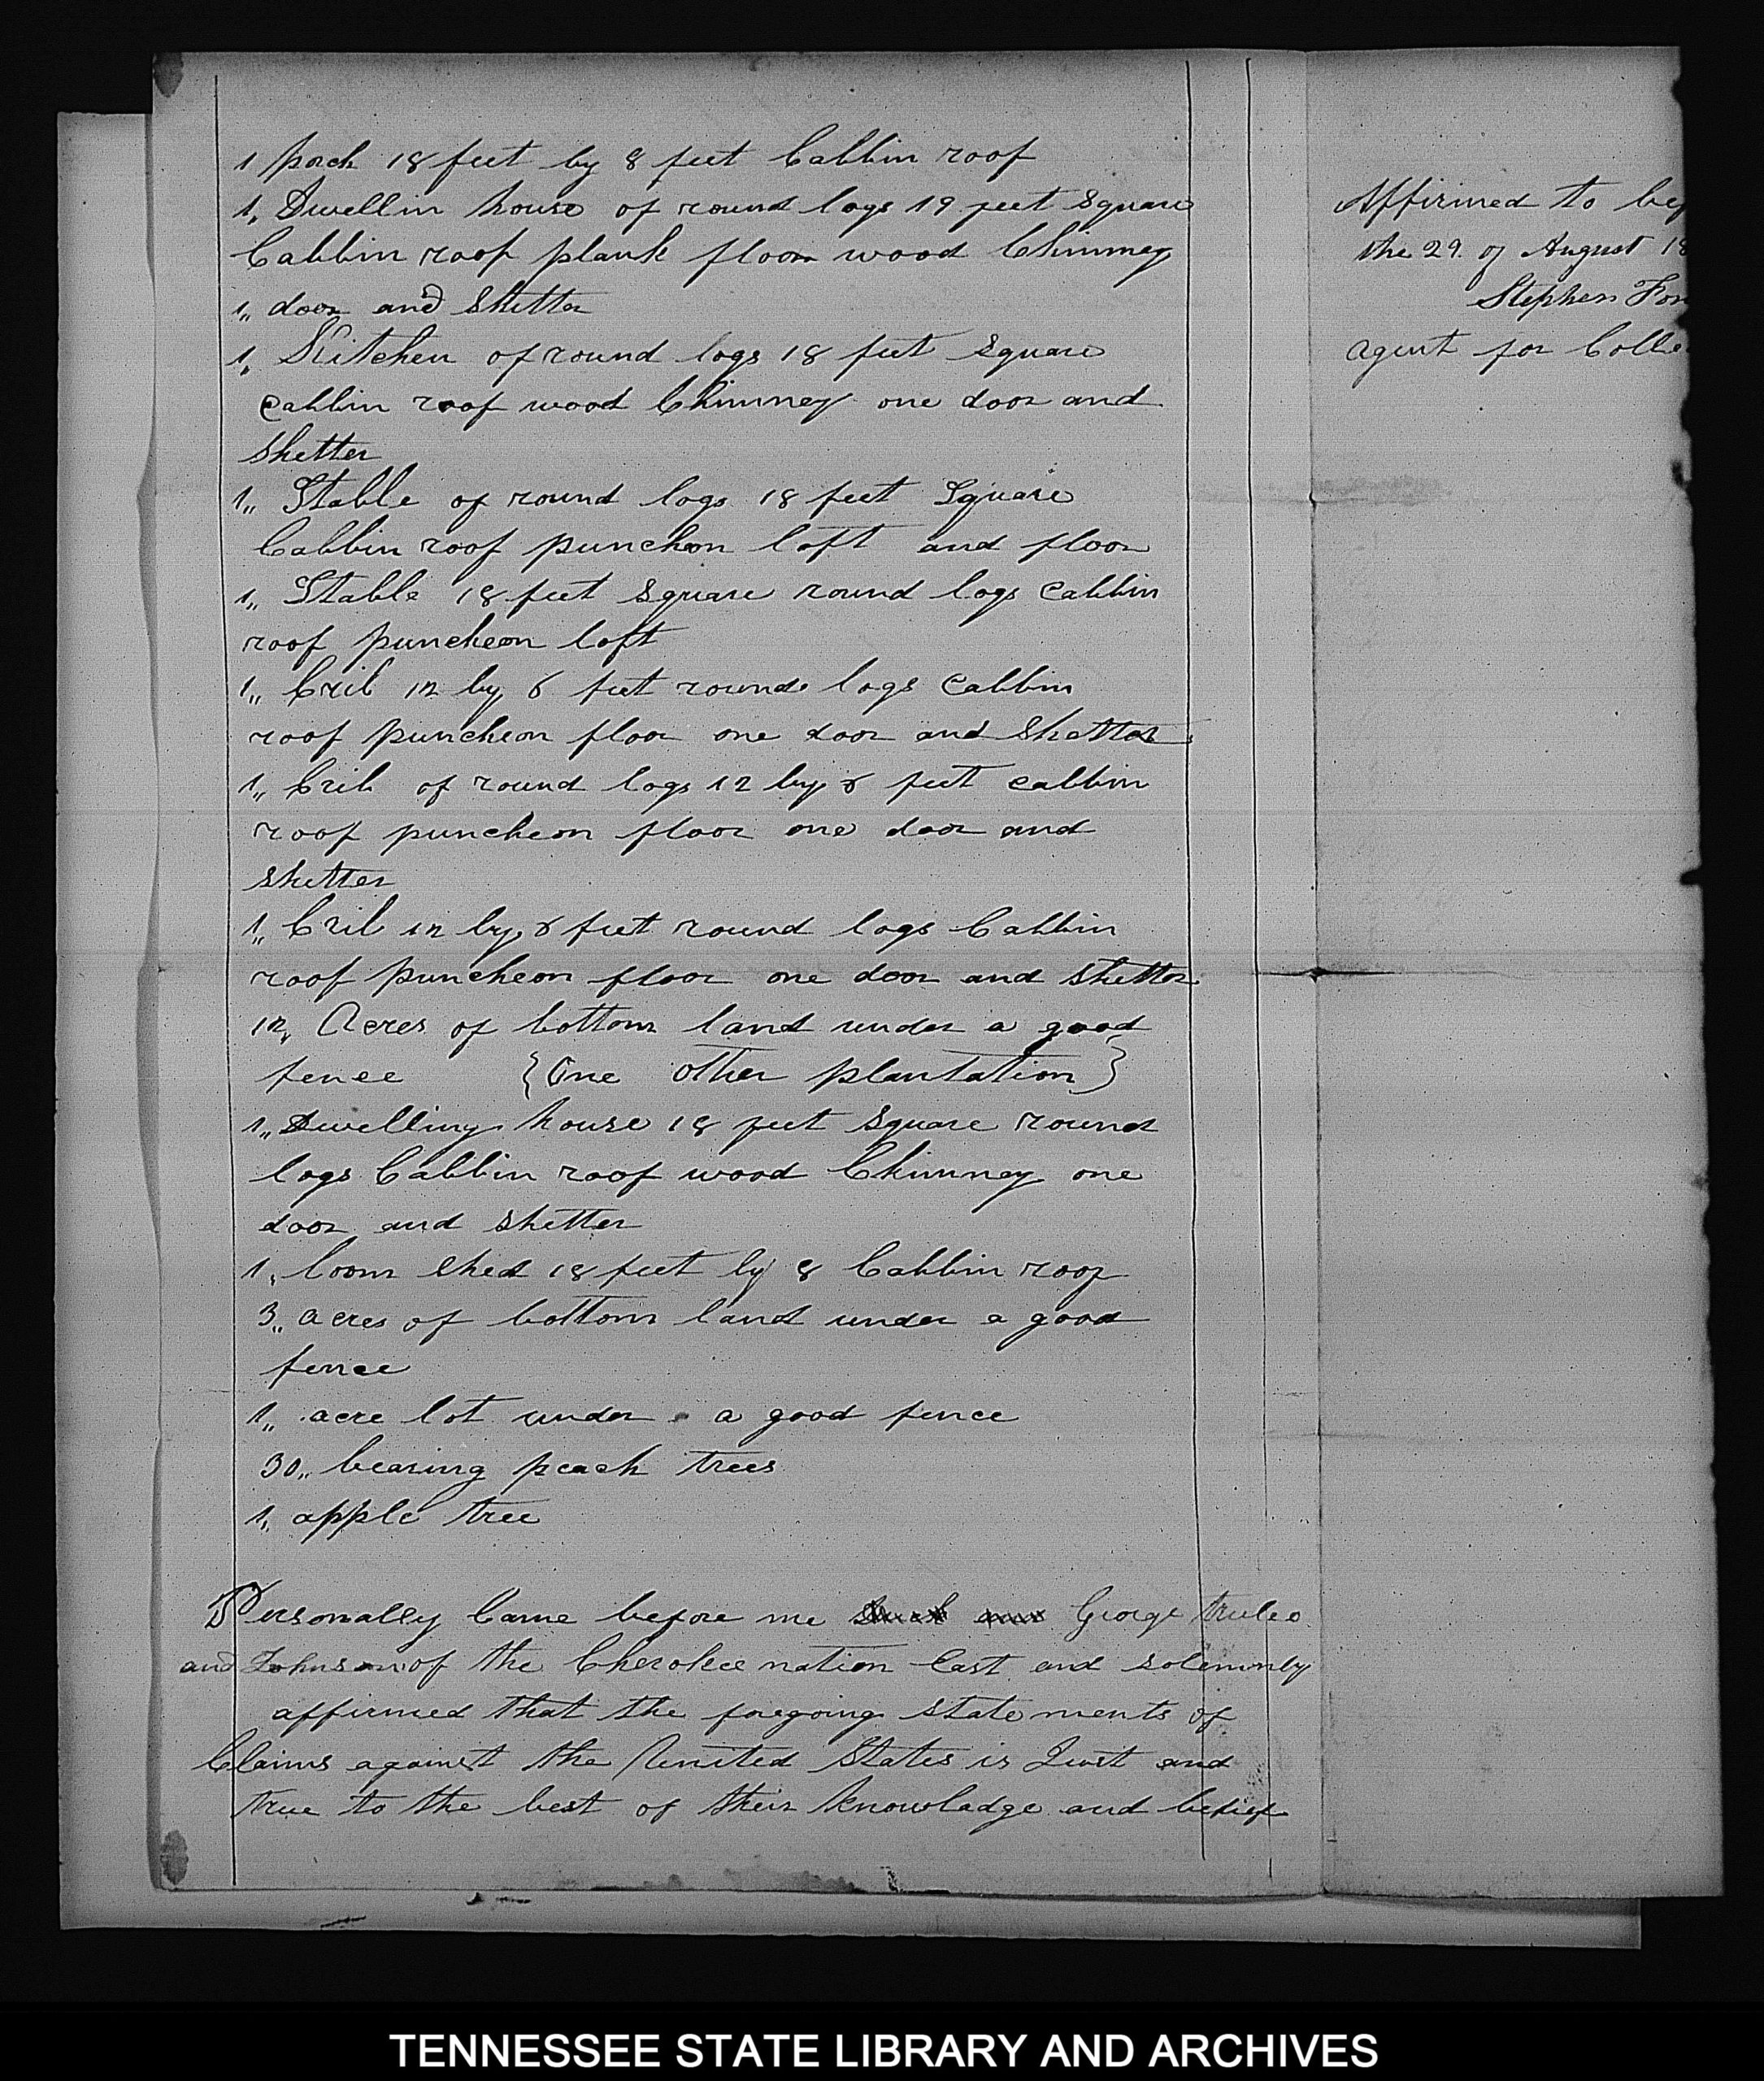 1 porch 18 feet by 8 feet Cabbin roof
1,, Dwellin house of round logs 19 feet Square
Cabbin roof plank floor wood Chimney
1,, door and Shetter
1,, Kitchen of round logs 18 feet Square
Cabbin roof wood Chimney one door and
Shetter
1,, Stable of round logs 18 feet Square
Cabbin roof puncheon loft and floor
1,, Stable 18 feet Square round logs Cabbin
roof puncheon loft
1,, Crib 12 by feet round logs Cabbin
roof puncheon floor one door and Shetter
1,, Crib of round logs 12 by feet cabbin
roof puncheon floor one door and
Shetter
1,, Crib 12 by feet round logs Cabbin
roof puncheon floor one door and Shetter
12,, Acres of bottom land under a good
fence {One other plantation}
1,, Dwelling house 18 feet Square round
logs Cabbin roof wood Chimney one
door and Shetter
1,, loom Shed 18 feet by 8 Cabbin roof
3,, acres of bottom land under a good
fence
1,, acre lot under a good fence
30,, bearing peach trees
1,, apple tree
Personally Came before me George
and Johnson of the Cherokee nation East and solemnly
affirmed that the foregoing statements of
Claims against the United States is Just and
true to the best of their knowladge and belief
Affirmed to bef
the 29. of August 18
Stephen
agent for Colle
TENNESSEE STATE LIBRARY AND ARCHIVES